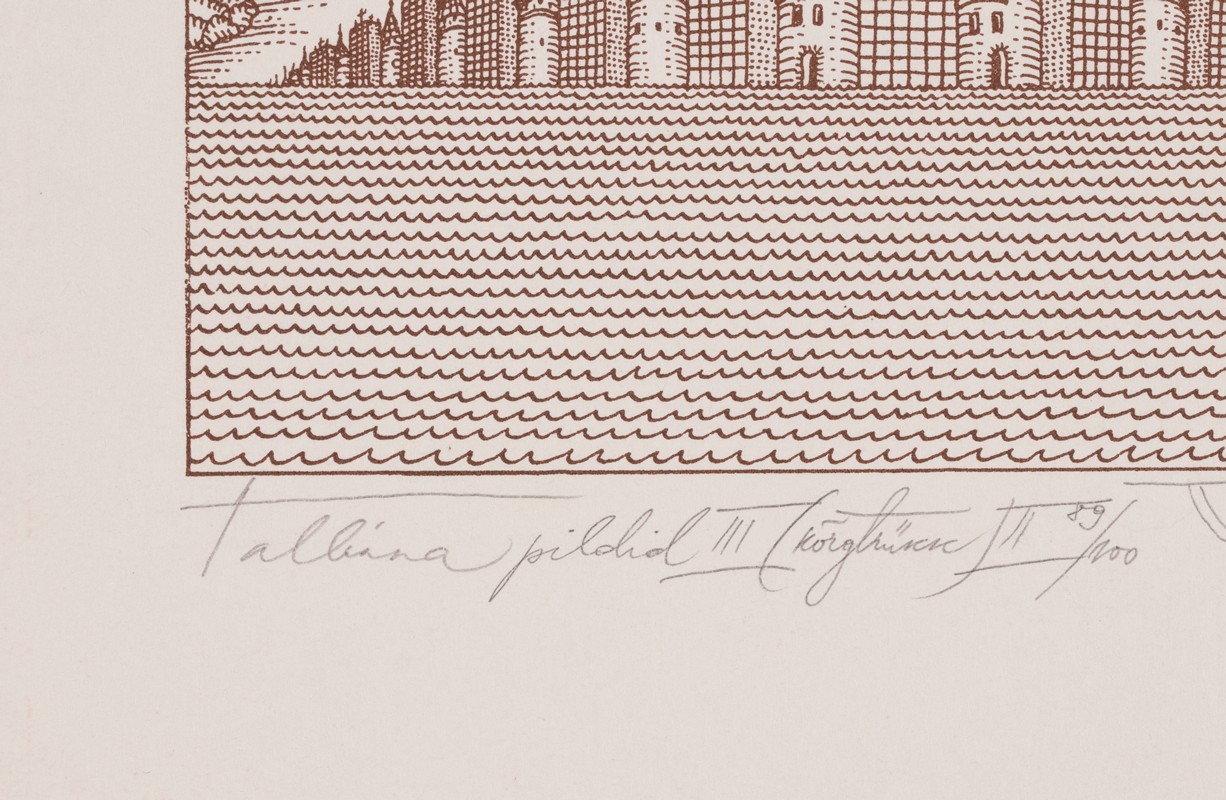 Tallinna pildid III (kõrgtrükk) II 89/100